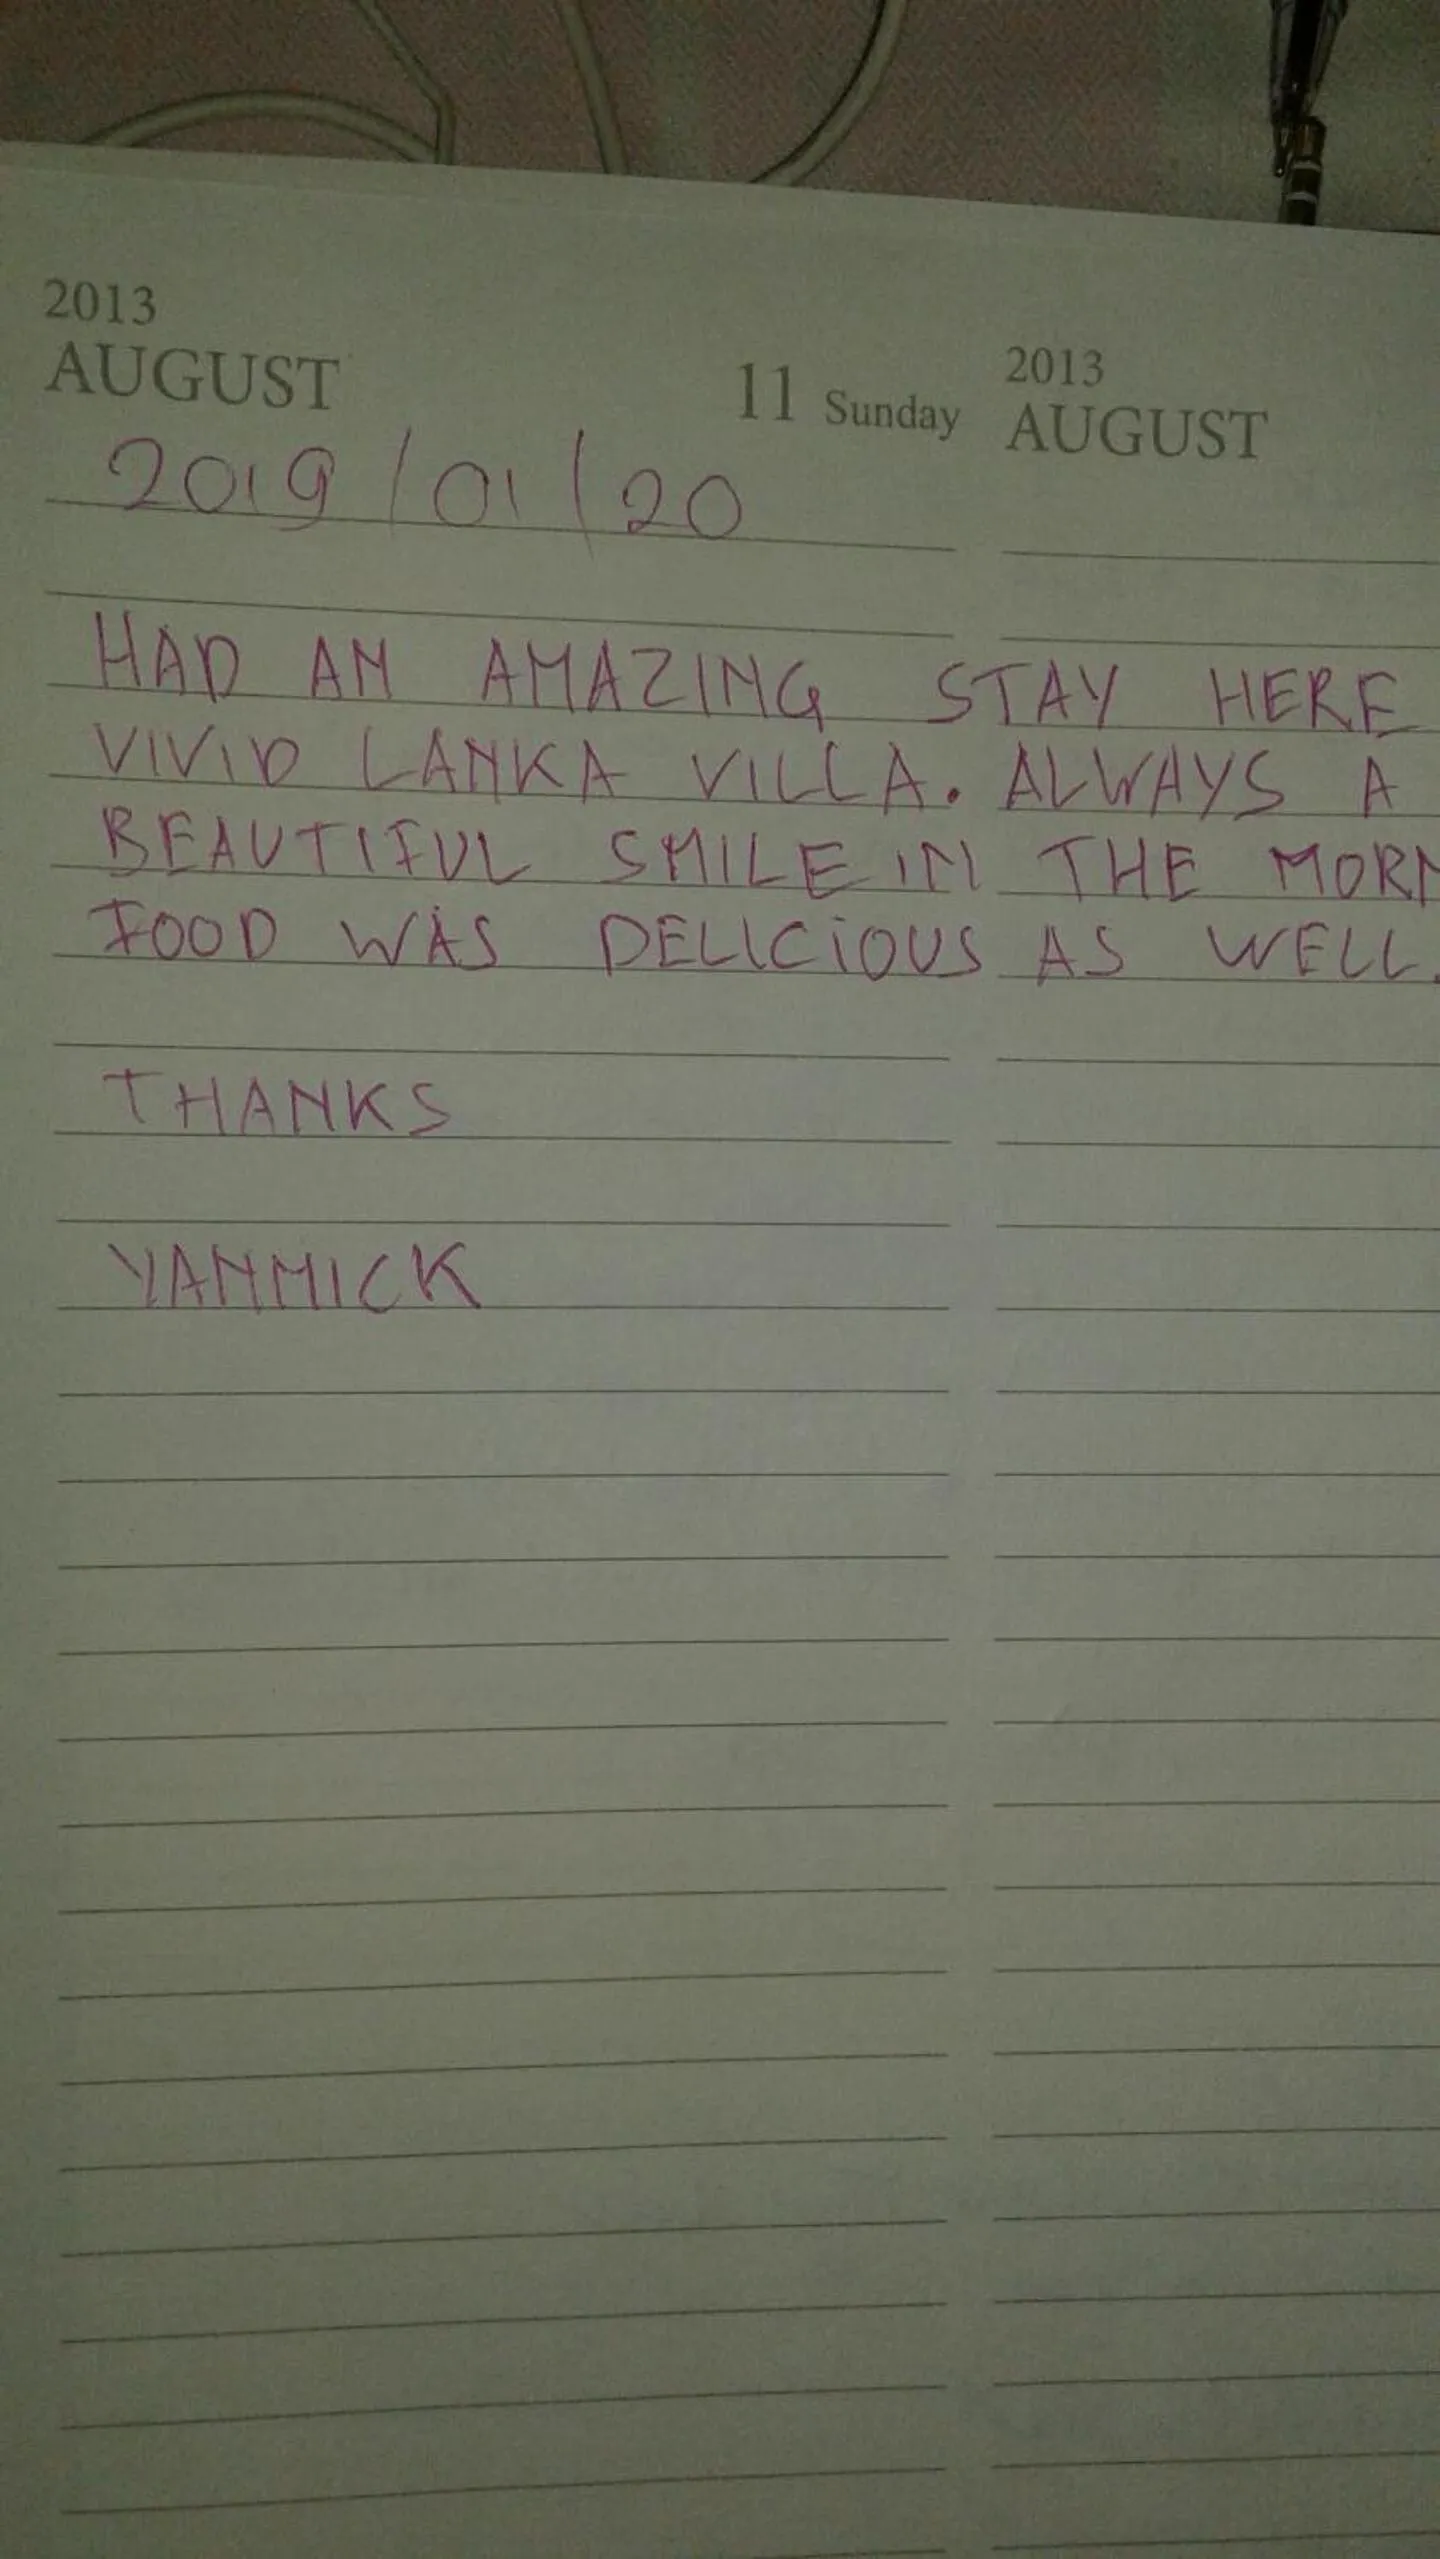 2013
AUGUST
11 Sunday
2013
AUGUST
2019/01/20
HAD AN AMAZING STAY HERE
VIVID LANKA VILLA. ALWAYS A
BEAUTIFUL SMILE IN THE MORN
FOOD WAS DELICIOUS AS WELL.
THANKS
YANNICK